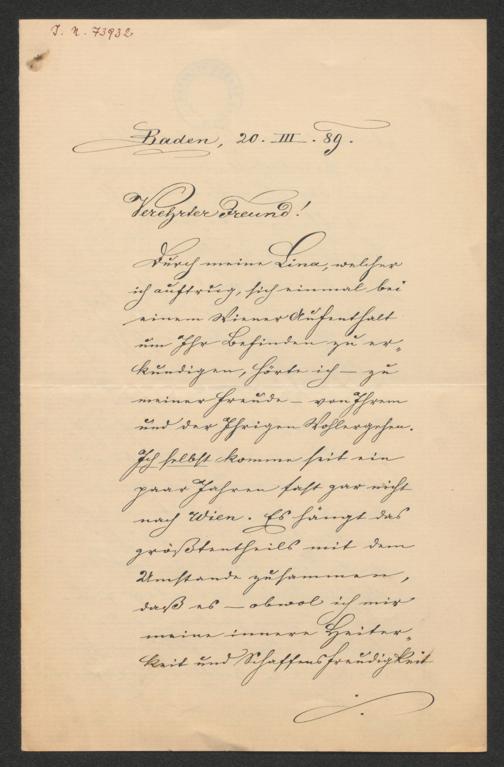 I. N. 73932
Baden, 20. III. 89.
Verehrter Freund!
Durch meine Lina, welcher
ich auftrug, sich einmal bei
einem Wiener Aufenthalt
um Ihr Befinden zu er-
kundigen, hörte ich – zu
meiner Freude – von Ihrem
und der Ihrigen Wohlergehen.
Ich selbst komme seit ein
paar Jahren fast gar nicht
nach Wien. Es hängt das
größtentheils mit dem
Umstande zusammen,
daß es – obwol ich mir
meine innere Heiter-
keit und Schaffensfreudigkeit